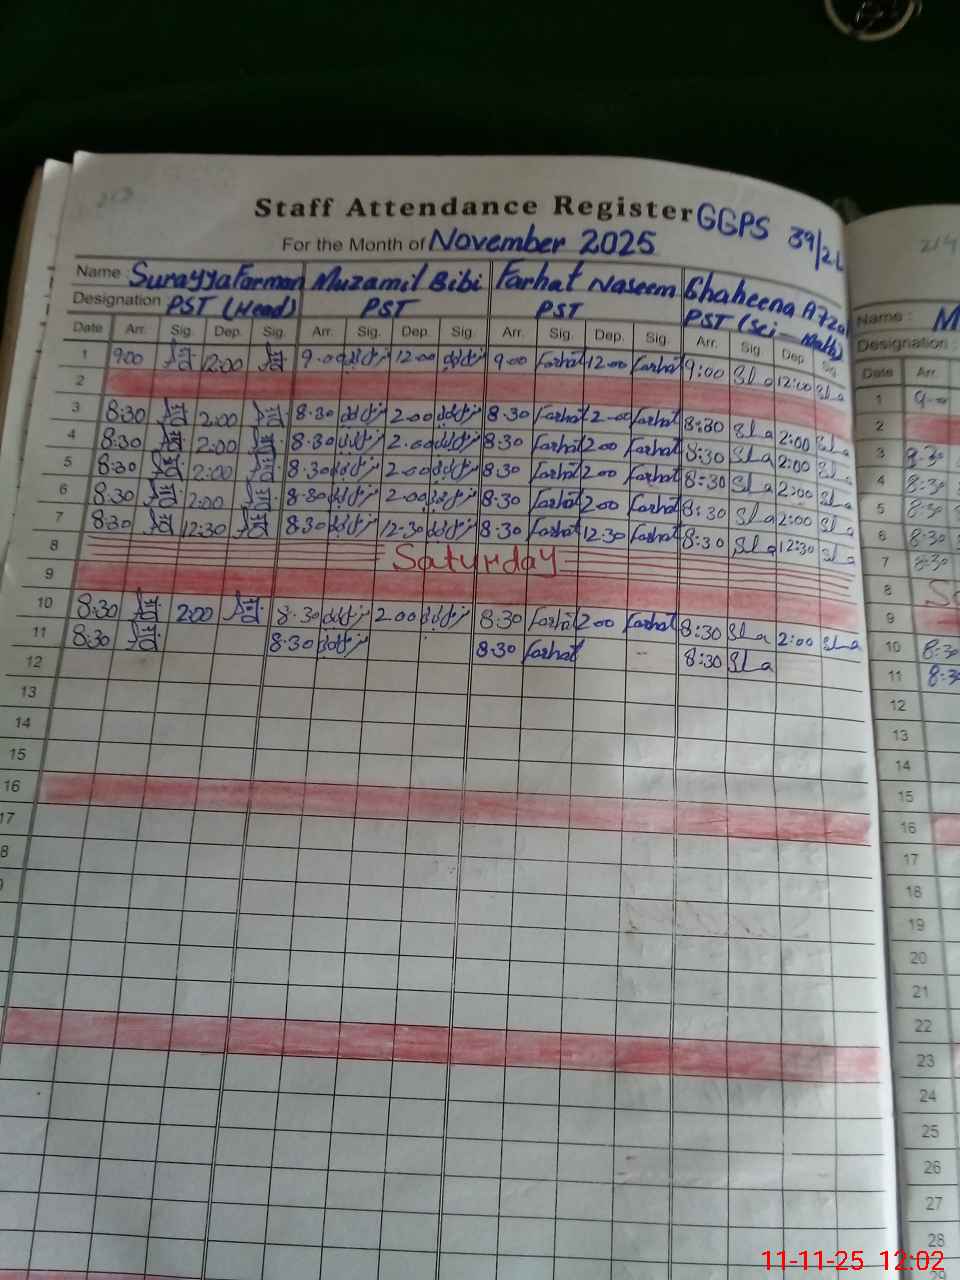 Staff Attendance Register GGPS 39/2L
For the Month of November 2025
Name : Surayya Farman Muzamil Bibi Farhat Naseem Ghaheena Afzal
Designation PST (Head) PST PST PST (Sci-Math)
Date Arr. Sig. Dep. Sig. Arr. Sig. Dep. Sig. Arr. Sig. Dep. Sig. Arr. Sig. Dep. Sig.
1 9:00 12:00 9.00 12.00 9.00 Farhat 12.00 Farhat 9:00 Sla 12:00 Sla
2
3 8:30 2:00 8.30 2.00 8.30 Farhat 2.00 Farhat 8:30 Sla 2:00 Sla
4 8:30 2:00 8.30 2.00 8.30 Farhat 2.00 Farhat 8:30 Sla 2:00 Sla
5 8:30 2:00 8.30 2.00 8.30 Farhat 2.00 Farhat 8:30 Sla 2:00 Sla
6 8:30 2:00 8.30 2.00 8.30 Farhat 2.00 Farhat 8:30 Sla 2:00 Sla
7 8:30 12:30 8.30 12.30 8.30 Farhat 12.30 Farhat 8:30 Sla 12:30 Sla
8 Saturday
9
10 8:30 2:00 8.30 2.00 8.30 Farhat 2.00 Farhat 8:30 Sla 2:00 Sla
11 8:30 8.30 8.30 Farhat 8:30 Sla
12
13
14
15
16
17
8
214
Name : M
Designation :
Date Arr.
1 9.00
2
3 8:30
4 8:30
5 8:30
6 8:30
7 8:30
8 S
9
10 8:30
11 8:30
12
13
14
15
16
17
18
19
20
21
22
23
24
25
26
27
28
11-11-25 12:02